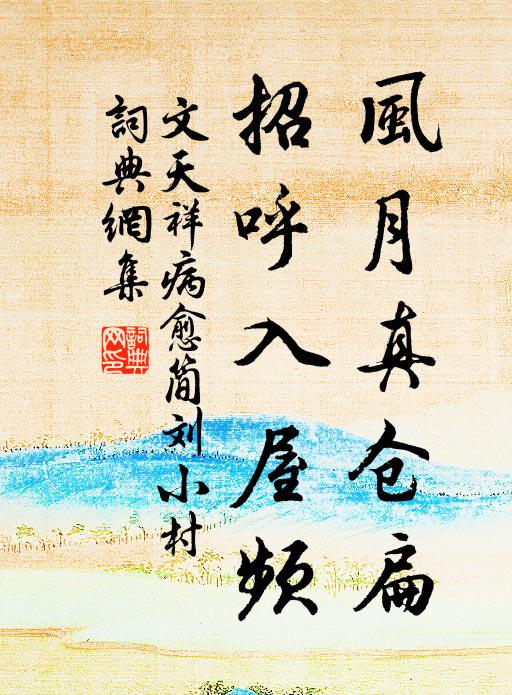 風月真仓扁
招呼入屋頻
文天祥病愈简刘小村
詞典網集
詞典網印